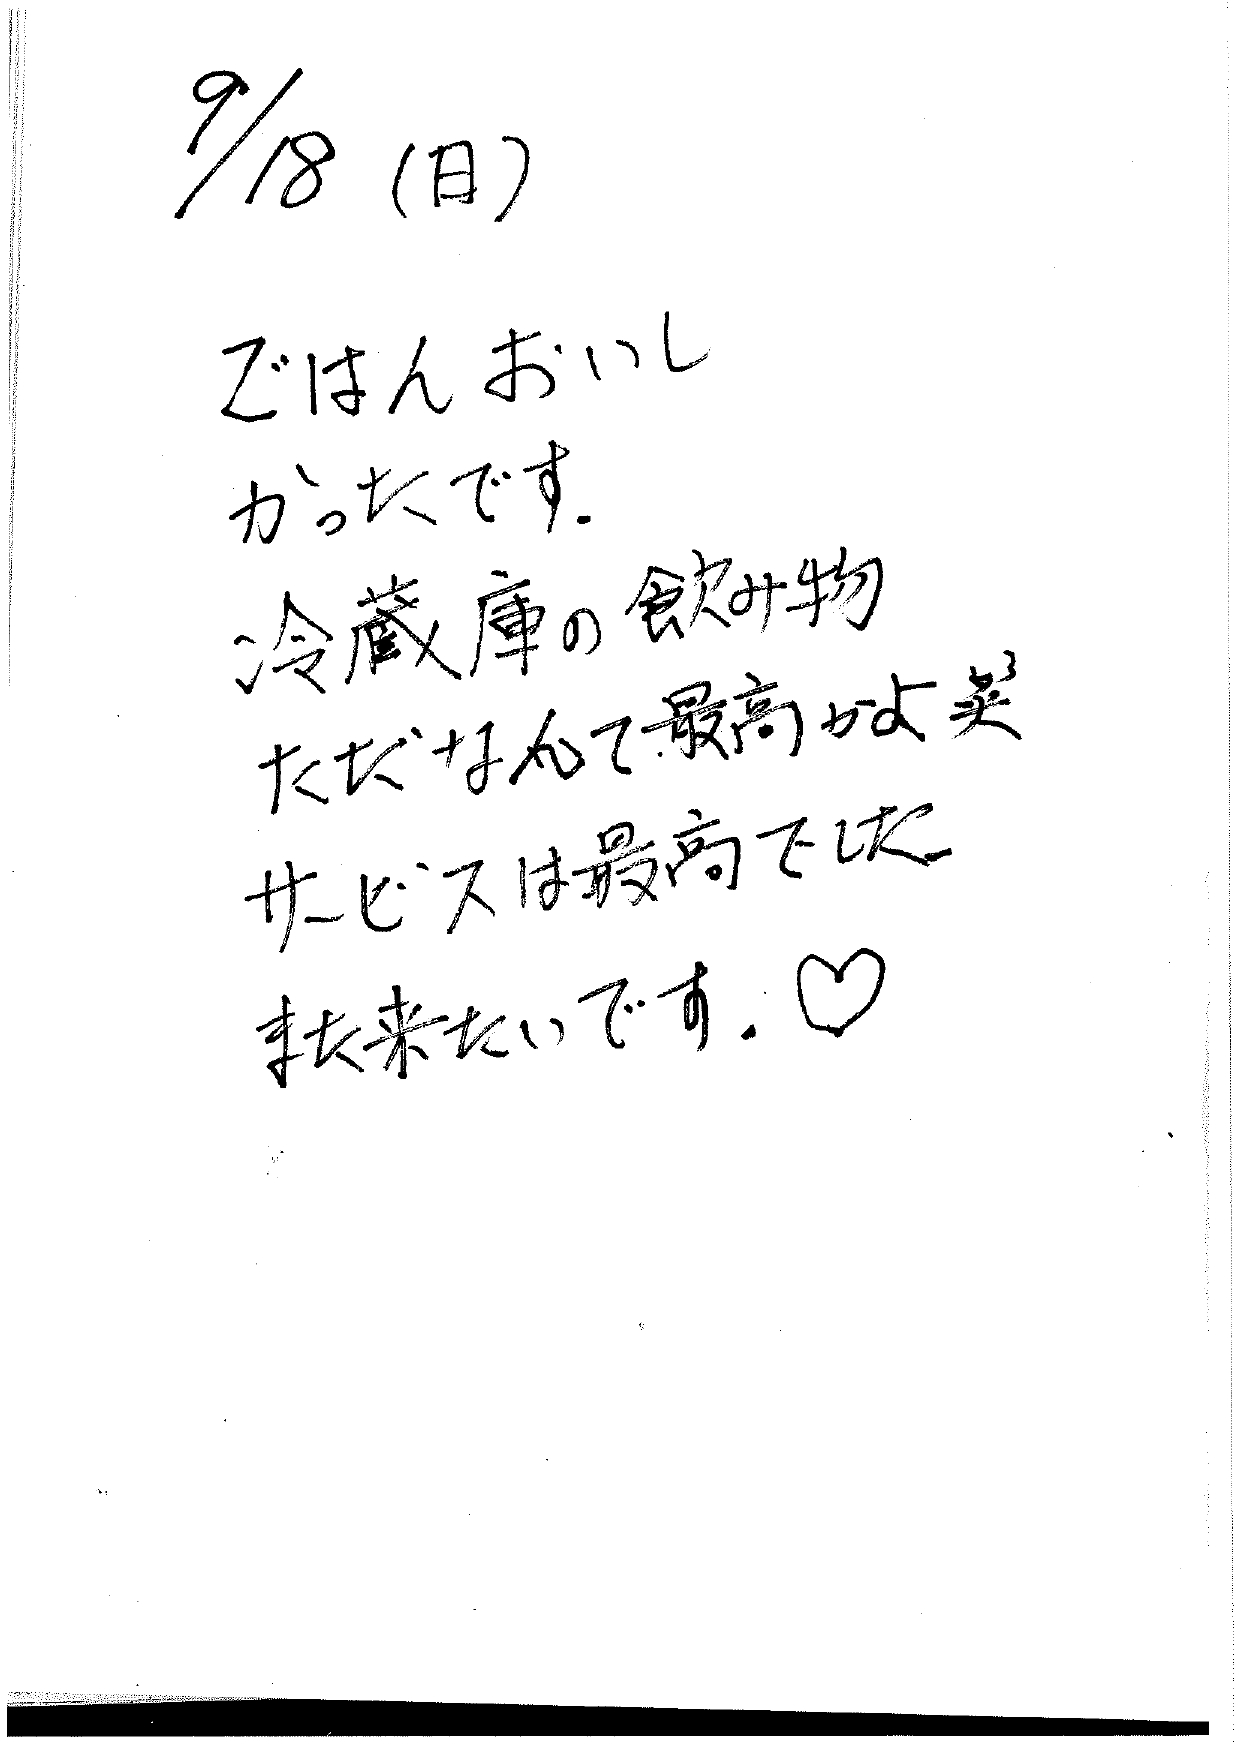 9/18 (日)
ごはん おいし
かったです.
冷蔵庫の飲み物
ただなんて最高かよ笑
サービスは最高でした
また来たいです. ♡